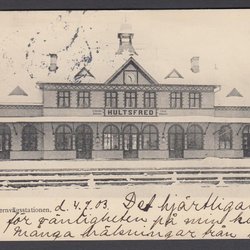 HULTSFRED
ernvägsstationen.
d. 4.7.03. Det hjärtligas
för vänligheten på min
Många hälsningar från